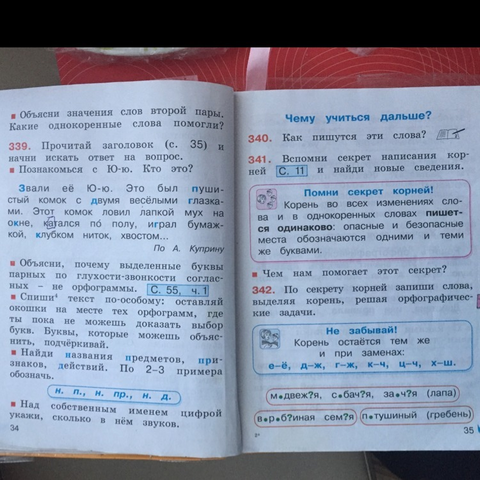 ▪ Объясни значения слов второй пары.
Какие однокоренные слова помогли?
339. Прочитай заголовок (с. 35) и
начни искать ответ на вопрос.
▪ Познакомься с Ю-ю. Кто это?
Звали её Ю-ю. Это был пуши-
стый комок с двумя весёлыми глазка-
ми. Этот комок ловил лапкой мух на
окне, катался по́ полу, играл бумаж-
кой, клубком ниток, хвостом...
По А. Куприну
▪ Объясни, почему выделенные буквы
парных по глухости-звонкости соглас-
ных – не орфограммы. С. 55, ч. 1
▪ Спиши⁴ текст по-особому: оставляй
окошки на месте тех орфограмм, где
ты пока не можешь доказать выбор
букв. Буквы, которые можешь объяс-
нить, подчёркивай.
▪ Найди названия предметов, при-
знаков, действий. По 2–3 примера
обозначь.
н. п., н. пр., н. д.
▪ Над собственным именем цифрой
укажи, сколько в нём звуков.
34
Чему учиться дальше?
340. Как пишутся эти слова?
341. Вспомни секрет написания кор-
ней С. 11 и найди новые сведения.
Помни секрет корней!
Корень во всех изменениях сло-
ва и в однокоренных словах пишет-
ся одинаково: опасные и безопасные
места обозначаются одними и теми
же буквами.
▪ Чем нам помогает этот секрет?
342. По секрету корней запиши слова,
выделяя корень, решая орфографичес-
кие задачи.
Не забывай!
Корень остаётся тем же
и при заменах:
е–ё, д–ж, г–ж, к–ч, ц–ч, х–ш.
м•двеж?я, с•бач?я, за•ч?я (лапа)
в•р•б?иная сем?я п•тушиный (гребень)
2*
35